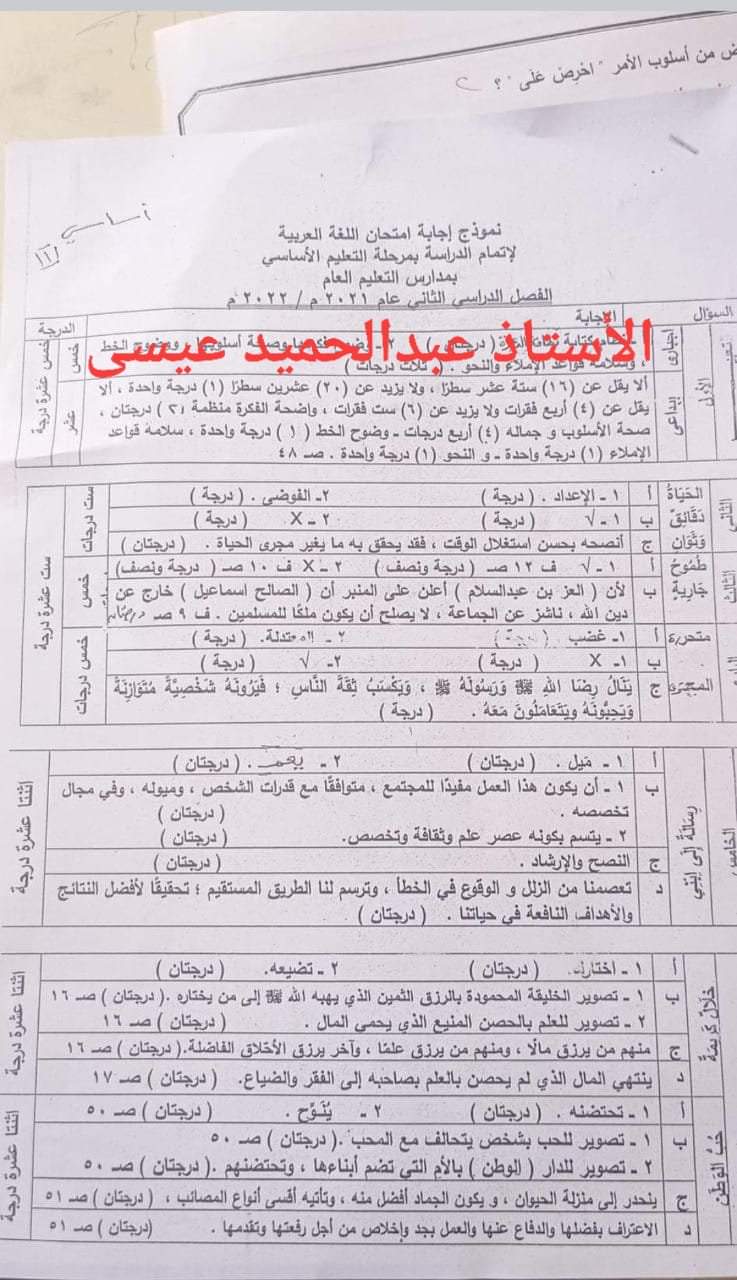 ض من أسلوب الأمر " احْرِصْ عَلَى " ؟
أساسي
(١)
نموذج إجابة امتحان اللغة العربية
لإتمام الدراسة بمرحلة التعليم الأساسي
بمدارس التعليم العام
الفصل الدراسي الثاني عام ٢٠٢١ م / ٢٠٢٢ م
السؤال الإجابة الدرجة
الأستاذ عبدالحميد عيسى
الأول إجبارى ( درجتان ) ٢ - وصحة أسلوبها ووضوح الخط
، وسلامة قواعد الإملاء والنحو . ( ثلاث درجات ) خمس
إبداعى ألا يقل عن (١٦) ستة عشر سطرًا ، ولا يزيد عن (٢٠) عشرين سطرًا (١) درجة واحدة ، ألا
يقل عن (٤) أربع فقرات ولا يزيد عن (٦) ست فقرات ، واضحة الفكرة منظمة (٢) درجتان ،
صحة الأسلوب و جماله (٤) أربع درجات - وضوح الخط (١) درجة واحدة ، سلامة قواعد
الإملاء (١) درجة واحدة - و النحو (١) درجة واحدة . صـ ٤٨
عشر
خمس عشرة درجة
الثاني الحَيَاةُ دَقَائِقٌ وَثَوَانٍ
أ ١ - الإعداد . ( درجة ) ٢- الفوضى . ( درجة )
ب ١ - √ ( درجة ) ٢ - X ( درجة )
ج أنصحه بحسن استغلال الوقت ، فقد يحقق به ما يغير مجرى الحياة . ( درجتان )
ست درجات
الثالث طُمُوحُ جَارِيَةٍ
أ ١ - √ ف ١٢ صـ ( درجة ونصف ) ٢ - X ف ١٠ صـ ( درجة ونصف )
ب لأن ( العز بن عبدالسلام ) أعلن على المنبر أن ( الصالح اسماعيل ) خارج عن
دين الله ، ناشز عن الجماعة ، لا يصلح أن يكون ملكًا للمسلمين . ف ٩ صـ درجتان
خمس
ست عشرة درجة
متحررة
أ ١- غضب ( درجة ) ٢ - المعتدلة. ( درجة )
ب ١- X ( درجة ) ٢- √ ( درجة )
ج يَنَالُ رِضَا اللهِ ﷺ وَرَسُولَهُ ﷺ ، وَيَكْسَبُ ثِقَةَ النَّاسِ ؛ فَيَرَوْنَهُ شَخْصِيَّةً مُتَوَازِنَةً
وَيُحِبُّونَهُ وَيَتَعَامَلُونَ مَعَهُ . ( درجة )
خمس درجات
١
الخامس رِسَالَةٌ إِلَى ابْنِي
أ ١ - مَيل . ( درجتان ) ٢ - ( درجتان )
ب ١ - أن يكون هذا العمل مفيدًا للمجتمع ، متوافقًا مع قدرات الشخص ، وميوله ، وفي مجال
تخصصه . ( درجتان )
٢ - يتسم بكونه عصر علم وثقافة وتخصص. ( درجتان )
ج النصح والإرشاد . ( درجتان )
د تعصمنا من الزلل و الوقوع في الخطأ ، وترسم لنا الطريق المستقيم ؛ تحقيقًا لأفضل النتائج
والأهداف النافعة في حياتنا . ( درجتان )
اثنتا عشرة درجة
خِلَالٌ كَرِيمَةٌ
أ ١ - اختارك. ( درجتان ) ٢ - تضيعه. ( درجتان )
ب ١ - تصوير الخليقة المحمودة بالرزق الثمين الذي يهبه الله ﷺ إلى من يختاره .( درجتان ) صـ ١٦
٢ - تصوير للعلم بالحصن المنيع الذي يحمى المال . ( درجتان ) صـ ١٦
ج منهم من يرزق مالًا ، ومنهم من يرزق علمًا ، وآخر يرزق الأخلاق الفاضلة.( درجتان ) صـ ١٦
د ينتهي المال الذي لم يحصن بالعلم بصاحبه إلى الفقر والضياع. ( درجتان ) صـ ١٧
اثنتا عشرة درجة
حُبُّ الوَطَنِ
أ ١ - تحتضنه . ( درجتان ) ٢ - يُنَوِّح . ( درجتان ) صـ ٥٠
ب ١ - تصوير للحب بشخص يتحالف مع المحب .( درجتان ) صـ ٥٠
٢ - تصوير للدار ( الوطن ) بالأم التي تضم أبناءها ، وتحتضنهم .( درجتان ) صـ ٥٠
ج ينحدر إلى منزلة الحيوان ، و يكون الجماد أفضل منه ، وتأتيه أقسى أنواع المصائب . ( درجتان ) صـ ٥١
د الاعتراف بفضلها والدفاع عنها والعمل بجد وإخلاص من أجل رفعتها وتقدمها . ( درجتان) صـ ٥١
اثنتا عشرة درجة